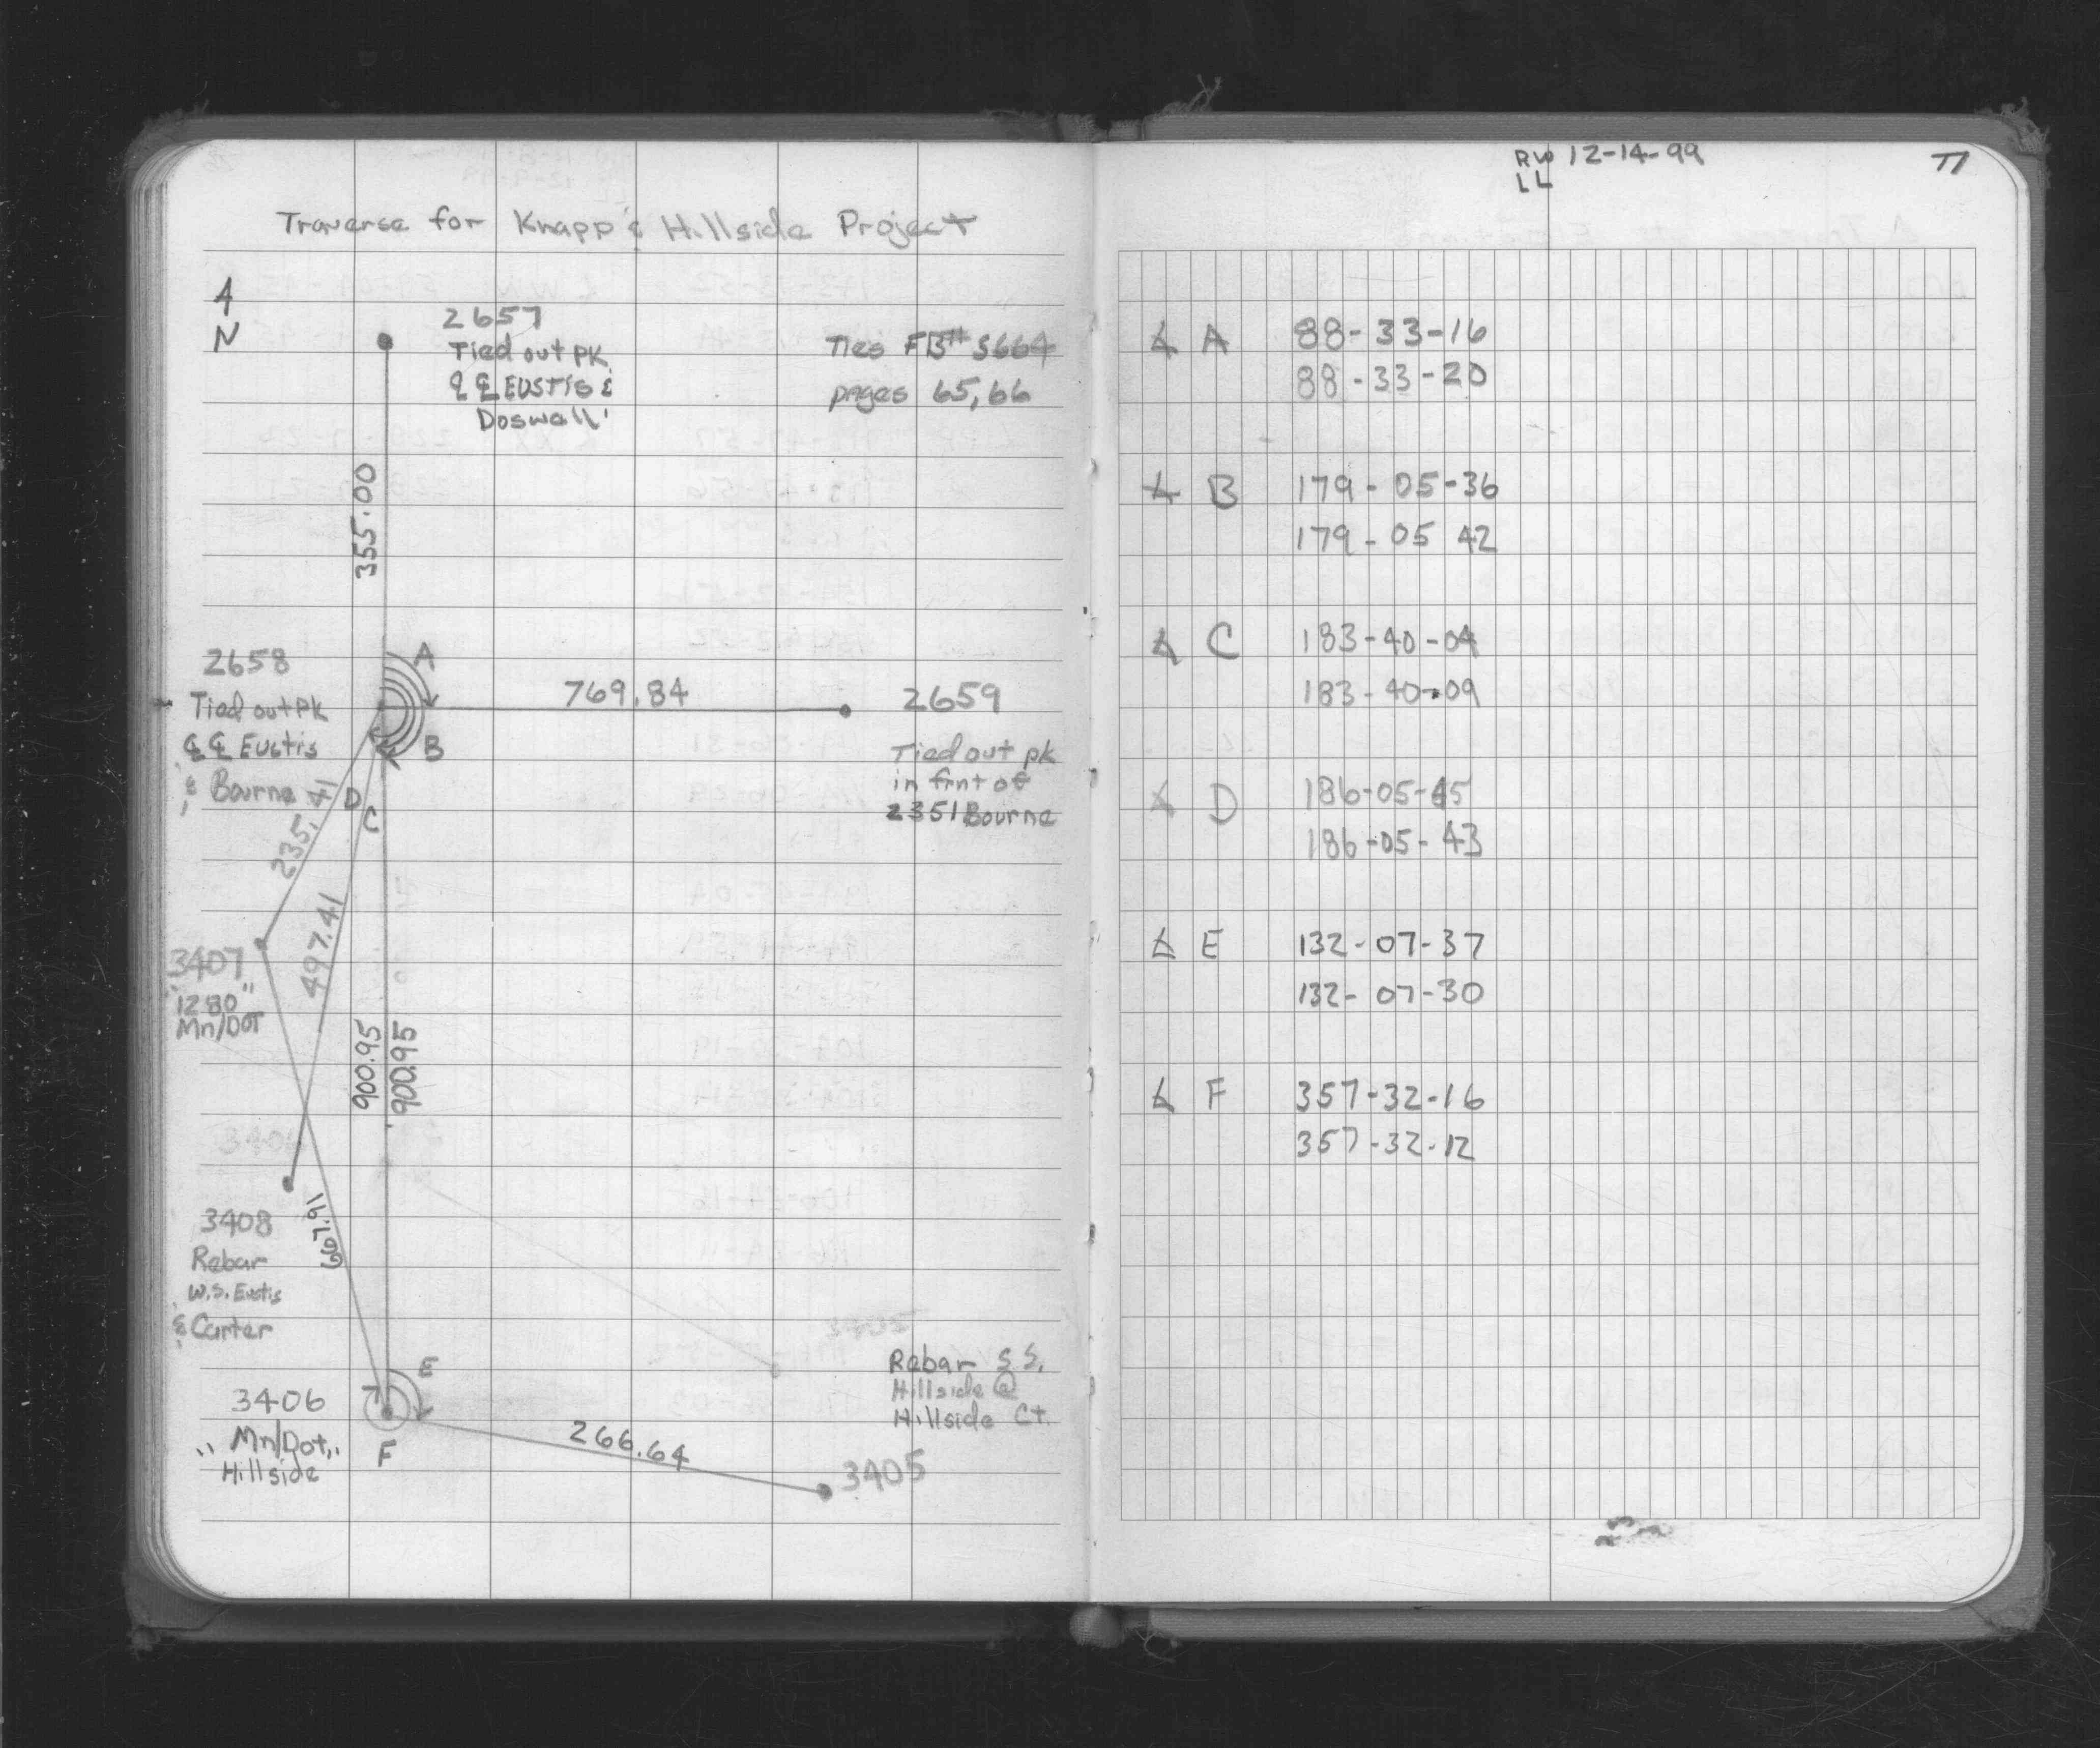 Traverse for Knapp & Hillside Project
N
2657
Tied out PK
@ ℄ EUSTIS &
Doswell
Ties FB# 5664
pages 65,66
355.00
2658
Tied out PK
@ ℄ Eustis
& Bourne
A
B
769.84
2659
Tied out pk
in frnt of
2351 Bourne
D
C
235.
497.41
3407
"1280"
Mn/DOT
900.95
900.95
3408
Rebar
W.S. Eustis
& Carter
667.91
3406
"Mn/Dot"
Hillside
E
F
266.64
Rebar S.S.
Hillside @
Hillside Ct.
3405
RW 12-14-99
LL
71
∡ A 88-33-16
88-33-20
∡ B 179-05-36
179-05 42
∡ C 183-40-04
183-40-09
∡ D 186-05-45
186-05-43
∡ E 132-07-37
132-07-30
∡ F 357-32-16
357-32-12